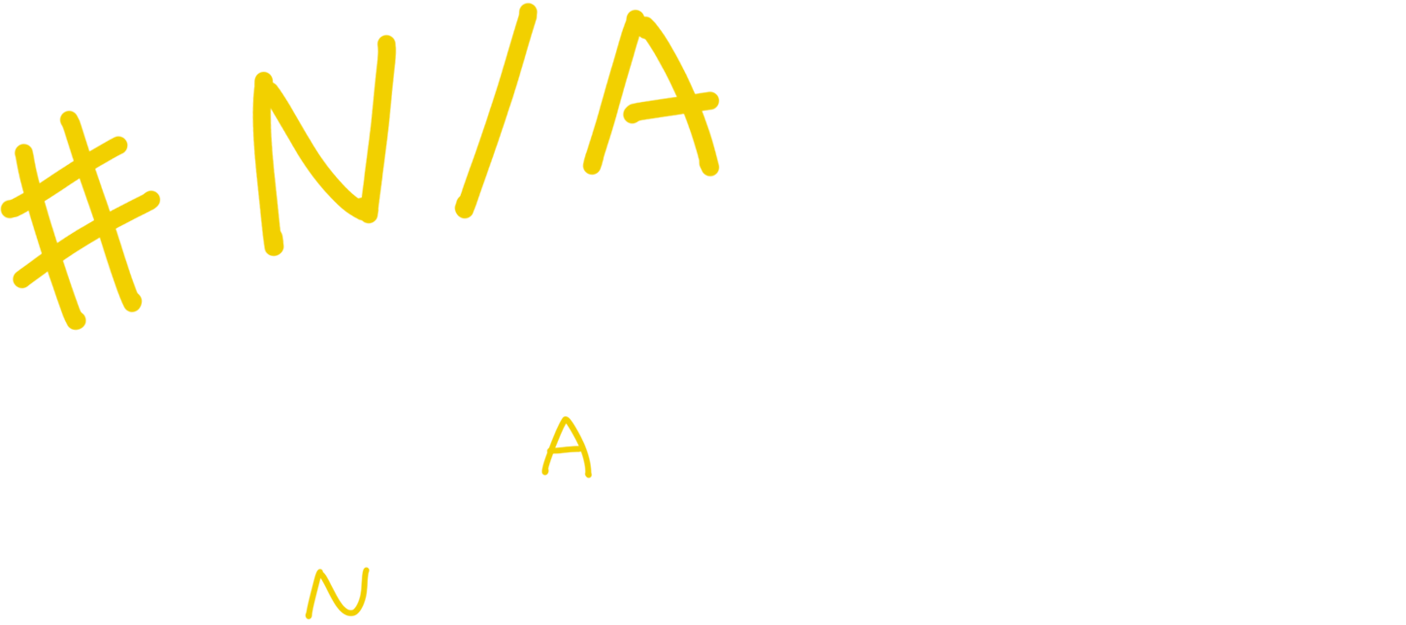 #N/A
A
N